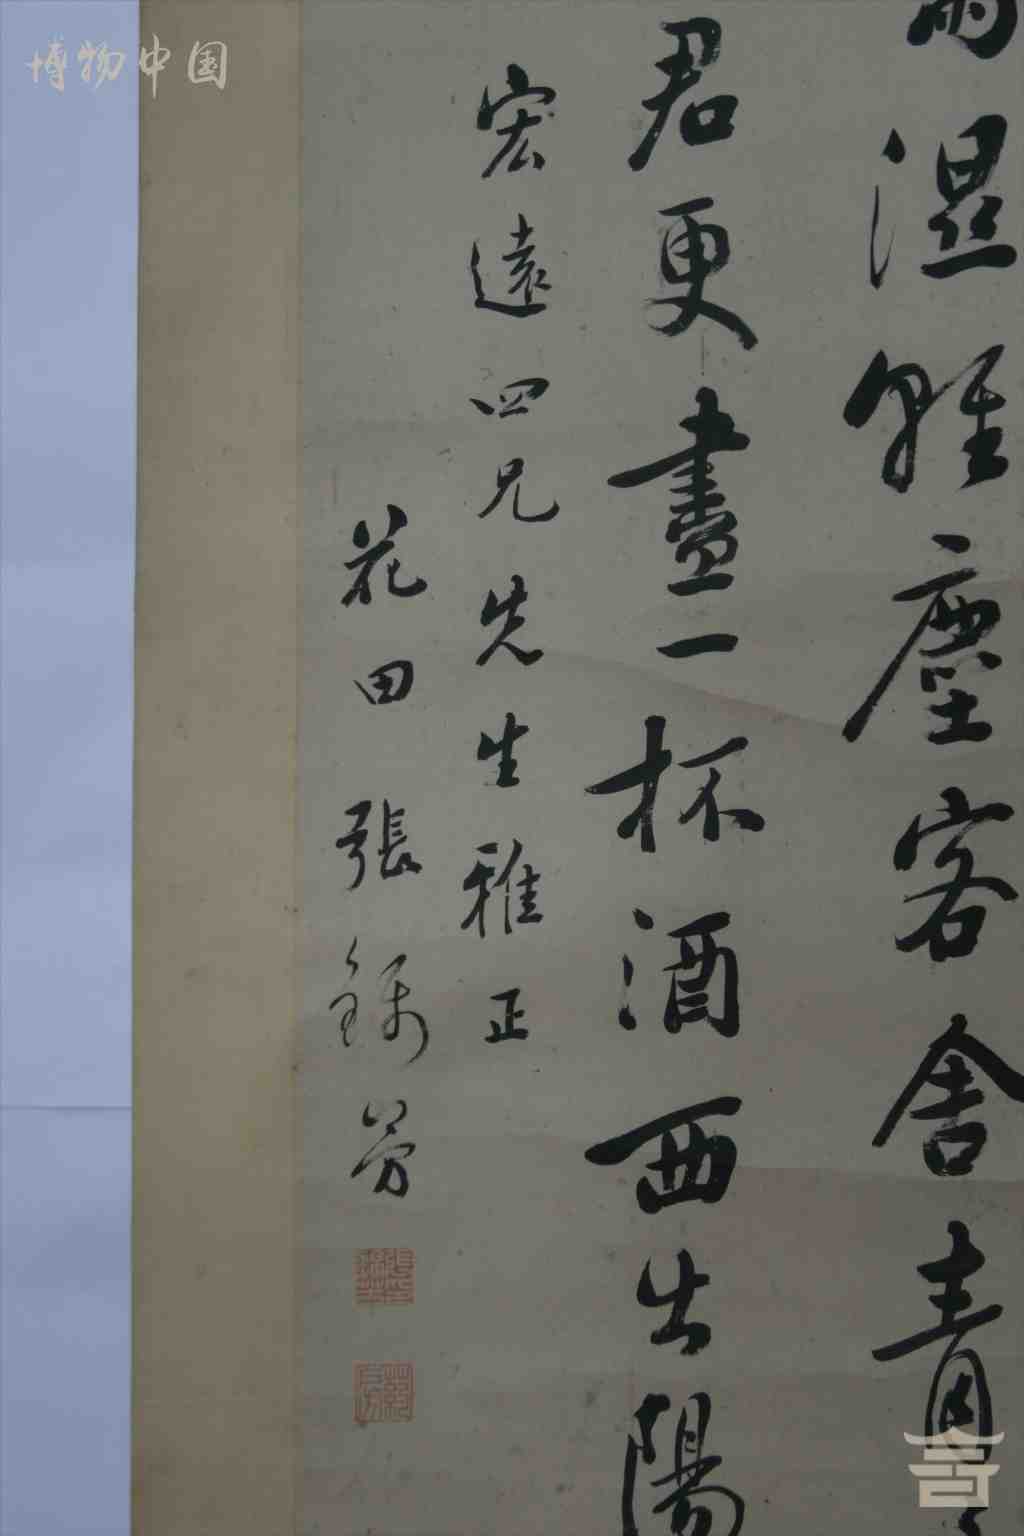 雨浥輕塵客舍青
君更盡一杯酒西出陽
宏遠四兄先生雅正
花田張錦芳
博物中国